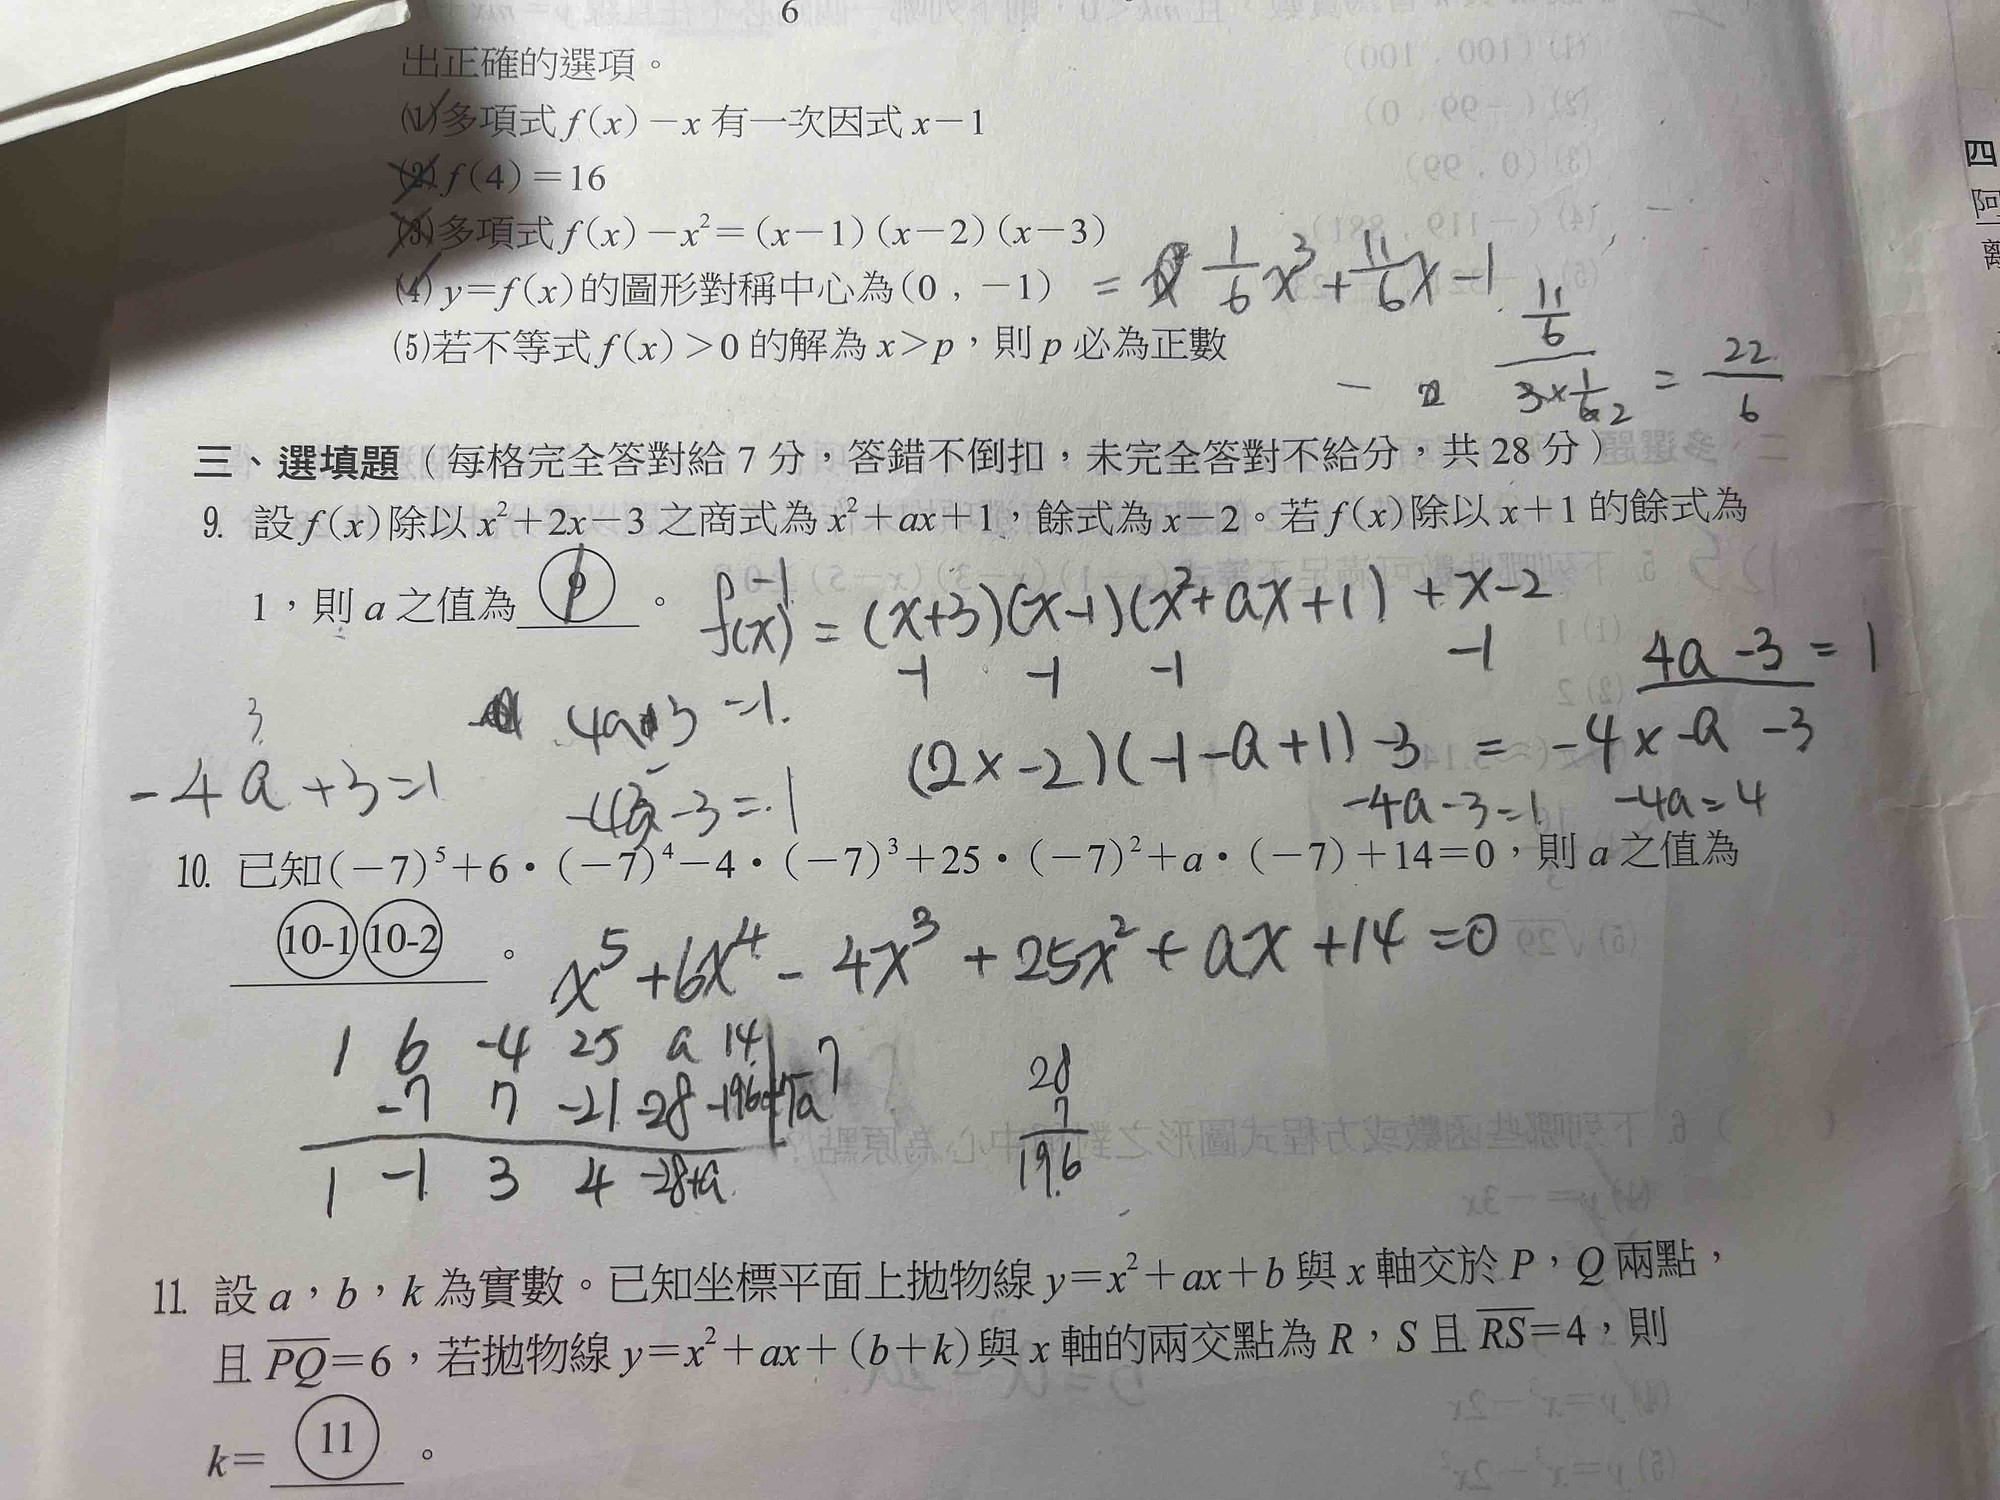 6
出正確的選項。
(1)多項式 f(x)－x 有一次因式 x－1
(2) f(4)＝16
(3)多項式 f(x)－x²＝(x－1)(x－2)(x－3)
(4) y＝f(x)的圖形對稱中心為(0，－1)
= 1/6 x³ + 11/6 x - 1
(5)若不等式 f(x)＞0 的解為 x＞p，則 p 必為正數
11/6
3×1/6
= 22/6
三、選填題（每格完全答對給 7 分，答錯不倒扣，未完全答對不給分，共 28 分）
9. 設 f(x)除以 x²＋2x－3 之商式為 x²＋ax＋1，餘式為 x－2。若 f(x)除以 x＋1 的餘式為
1，則 a 之值為 9 。
-1
f(x) = (x+3)(x-1)(x²+ax+1) + x-2
-1 -1 -1 -1
4a-3=1
3
4a 3 =1.
(2×-2)(-1-a+1)-3 = -4×-a -3
-4a+3=1
-3=1
-4a-3=1 -4a=4
10. 已知(－7)⁵＋6·(－7)⁴－4·(－7)³＋25·(－7)²＋a·(－7)＋14＝0，則 a 之值為
10-1 10-2 。
x⁵+6x⁴-4x³+25x²+ax+14=0
1 6 -4 25 a 14
-7 7 -21 -28 -7
1 -1 3 4 -28+a
28
7
196
11. 設 a，b，k 為實數。已知坐標平面上拋物線 y＝x²＋ax＋b 與 x 軸交於 P，Q 兩點，
且 PQ＝6，若拋物線 y＝x²＋ax＋(b＋k)與 x 軸的兩交點為 R，S 且 RS＝4，則
k＝ 11 。
四
阿
離